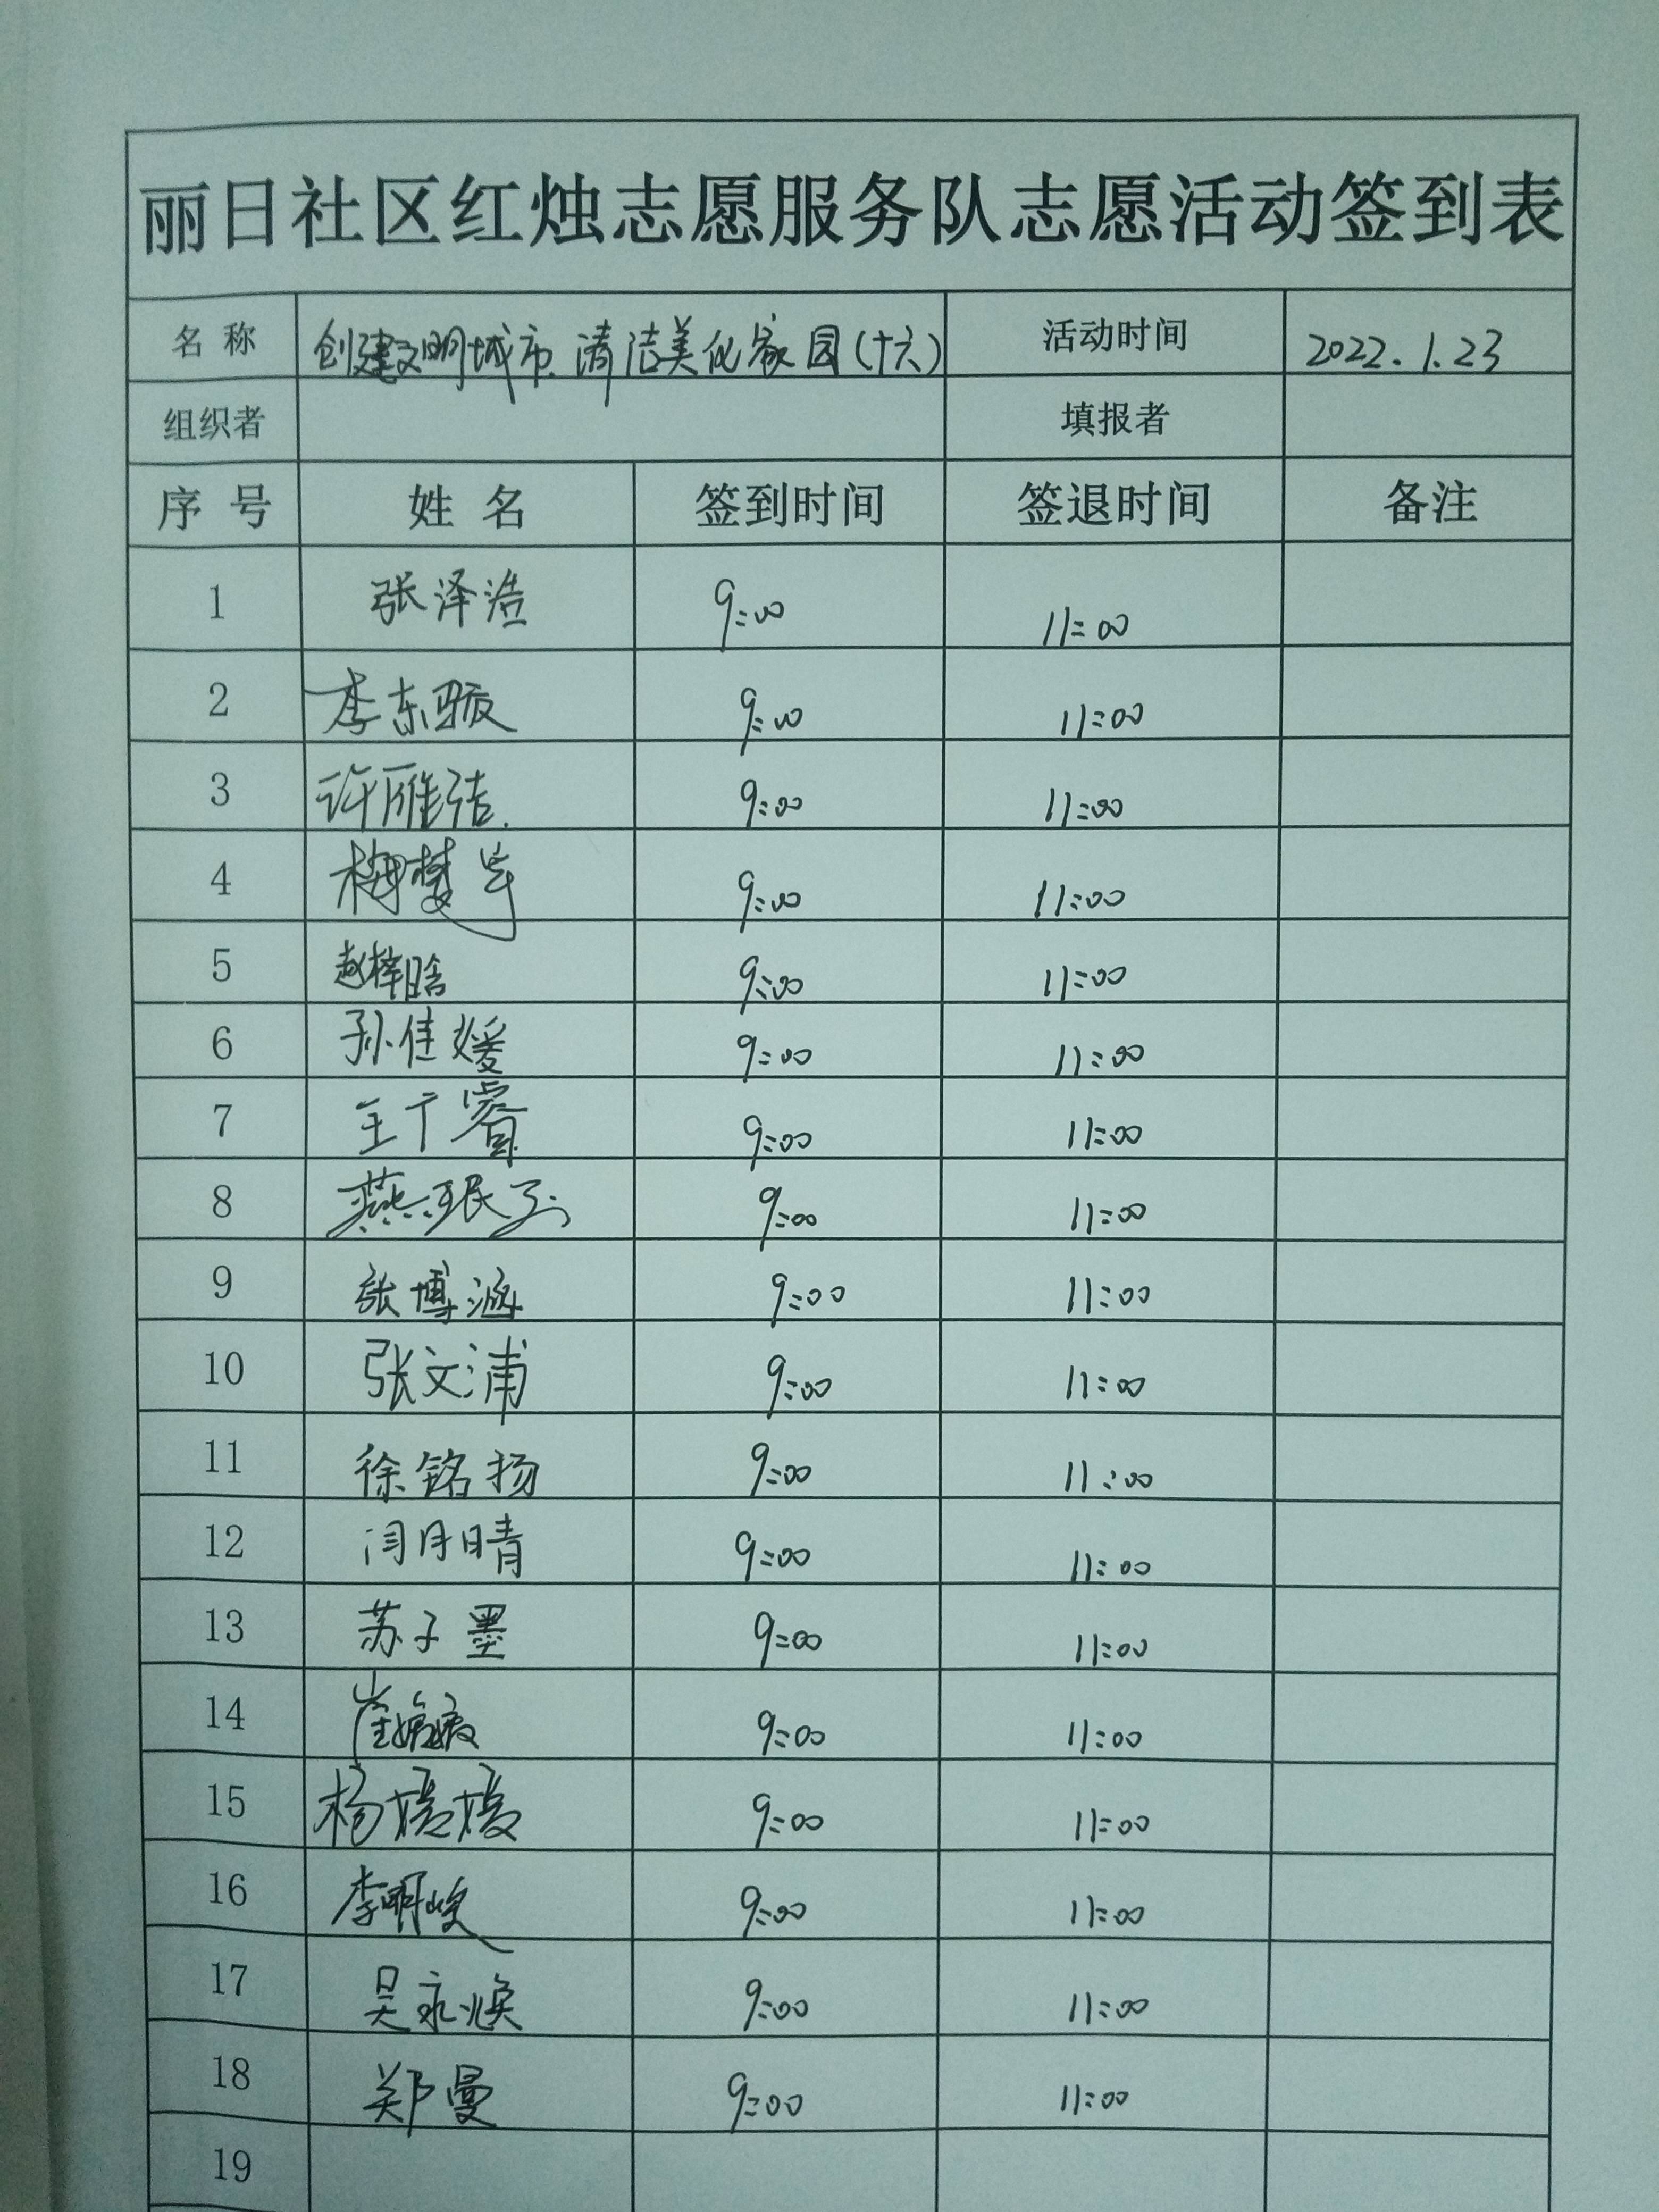 丽日社区红烛志愿服务队志愿活动签到表
名 称 创建文明城市.清洁美化家园(十六) 活动时间 2022.1.23
组织者 填报者
序 号 姓 名 签到时间 签退时间 备注
1 张泽浩 9:00 11:00
2 李东骏 9:00 11:00
3 许雁洁. 9:00 11:00
4 梅 9:00 11:00
5 赵梓晗 9:00 11:00
6 孙佳媛 9:00 11:00
7 王于睿 9:00 11:00
8 燕珉 9:00 11:00
9 张博涵 9:00 11:00
10 张文浦 9:00 11:00
11 徐铭扬 9:00 11:00
12 闫月晴 9:00 11:00
13 苏子墨 9:00 11:00
14 崔媛媛 9:00 11:00
15 杨媛媛 9:00 11:00
16 李明峻 9:00 11:00
17 吴永焕 9:00 11:00
18 郑曼 9:00 11:00
19